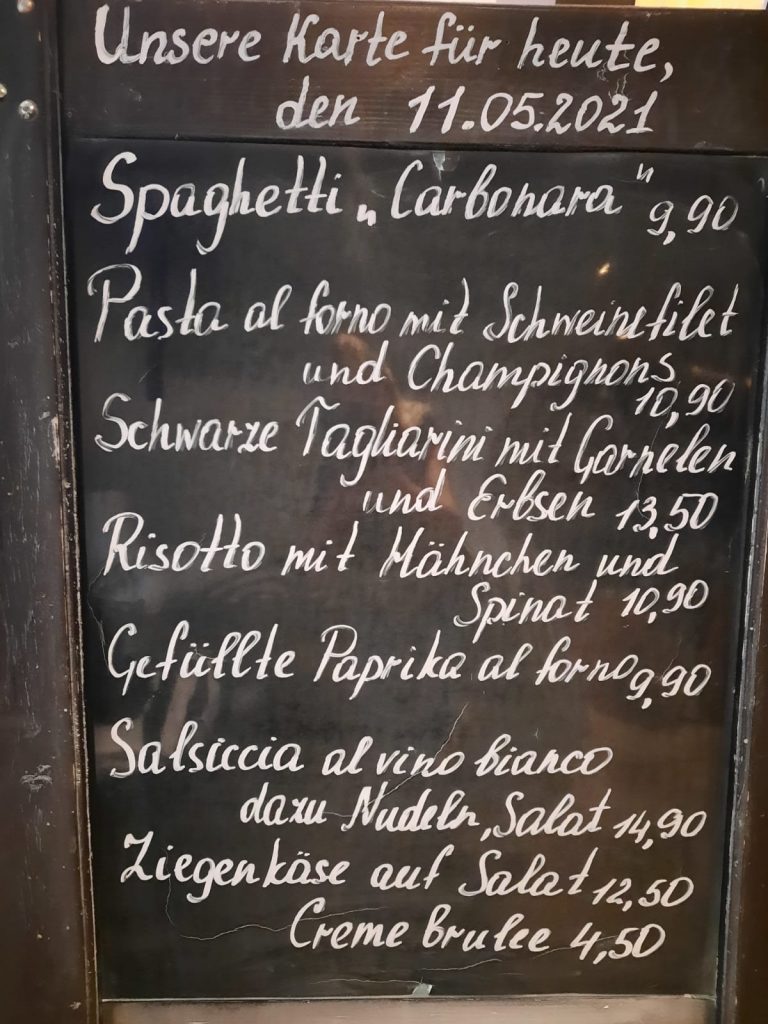 Unsere Karte für heute,
den 11.05.2021
Spaghetti „Carbonara" 9,90
Pasta al forno mit Schweinefilet
und Champignons
10,90
Schwarze Tagliarini mit Garnelen
und Erbsen 13,50
Risotto mit Hähnchen und
Spinat 10,90
Gefüllte Paprika al forno 9,90
Salsiccia al vino bianco
dazu Nudeln, Salat 14,90
Ziegenkäse auf Salat 12,50
Creme brulee 4,50